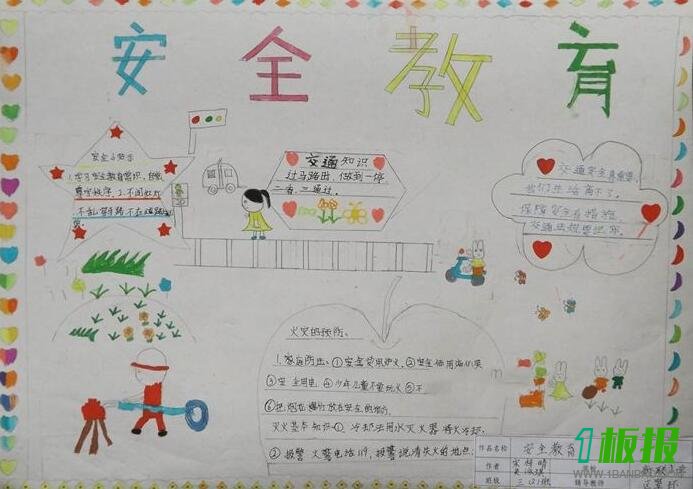 安全教育
安全小知识
1.学习安全教育常识，自觉
遵守秩序。2.不闯红灯
不乱穿马路不在道路
交通知识
过马路时，做到一停
二看三通过。
交通安全真重要，
我们生活离不了。
保障安全有措施
交通法规要记牢。
火灾的预防。
1.家庭防火：①安全使用炉火，②安全使用液化气
③安全用电 ④少年儿童不要玩火 ⑤不
⑥把烟花爆竹放在安全的地方
灭火基本知识：①冷却法用水灭火器将火冷却.
②报警 火警电话119，报警说清失火的地点.
作品名称 安全教育
作者
班级 三(2)班 辅导教师
1板报
WWW.1BANBAO.COM